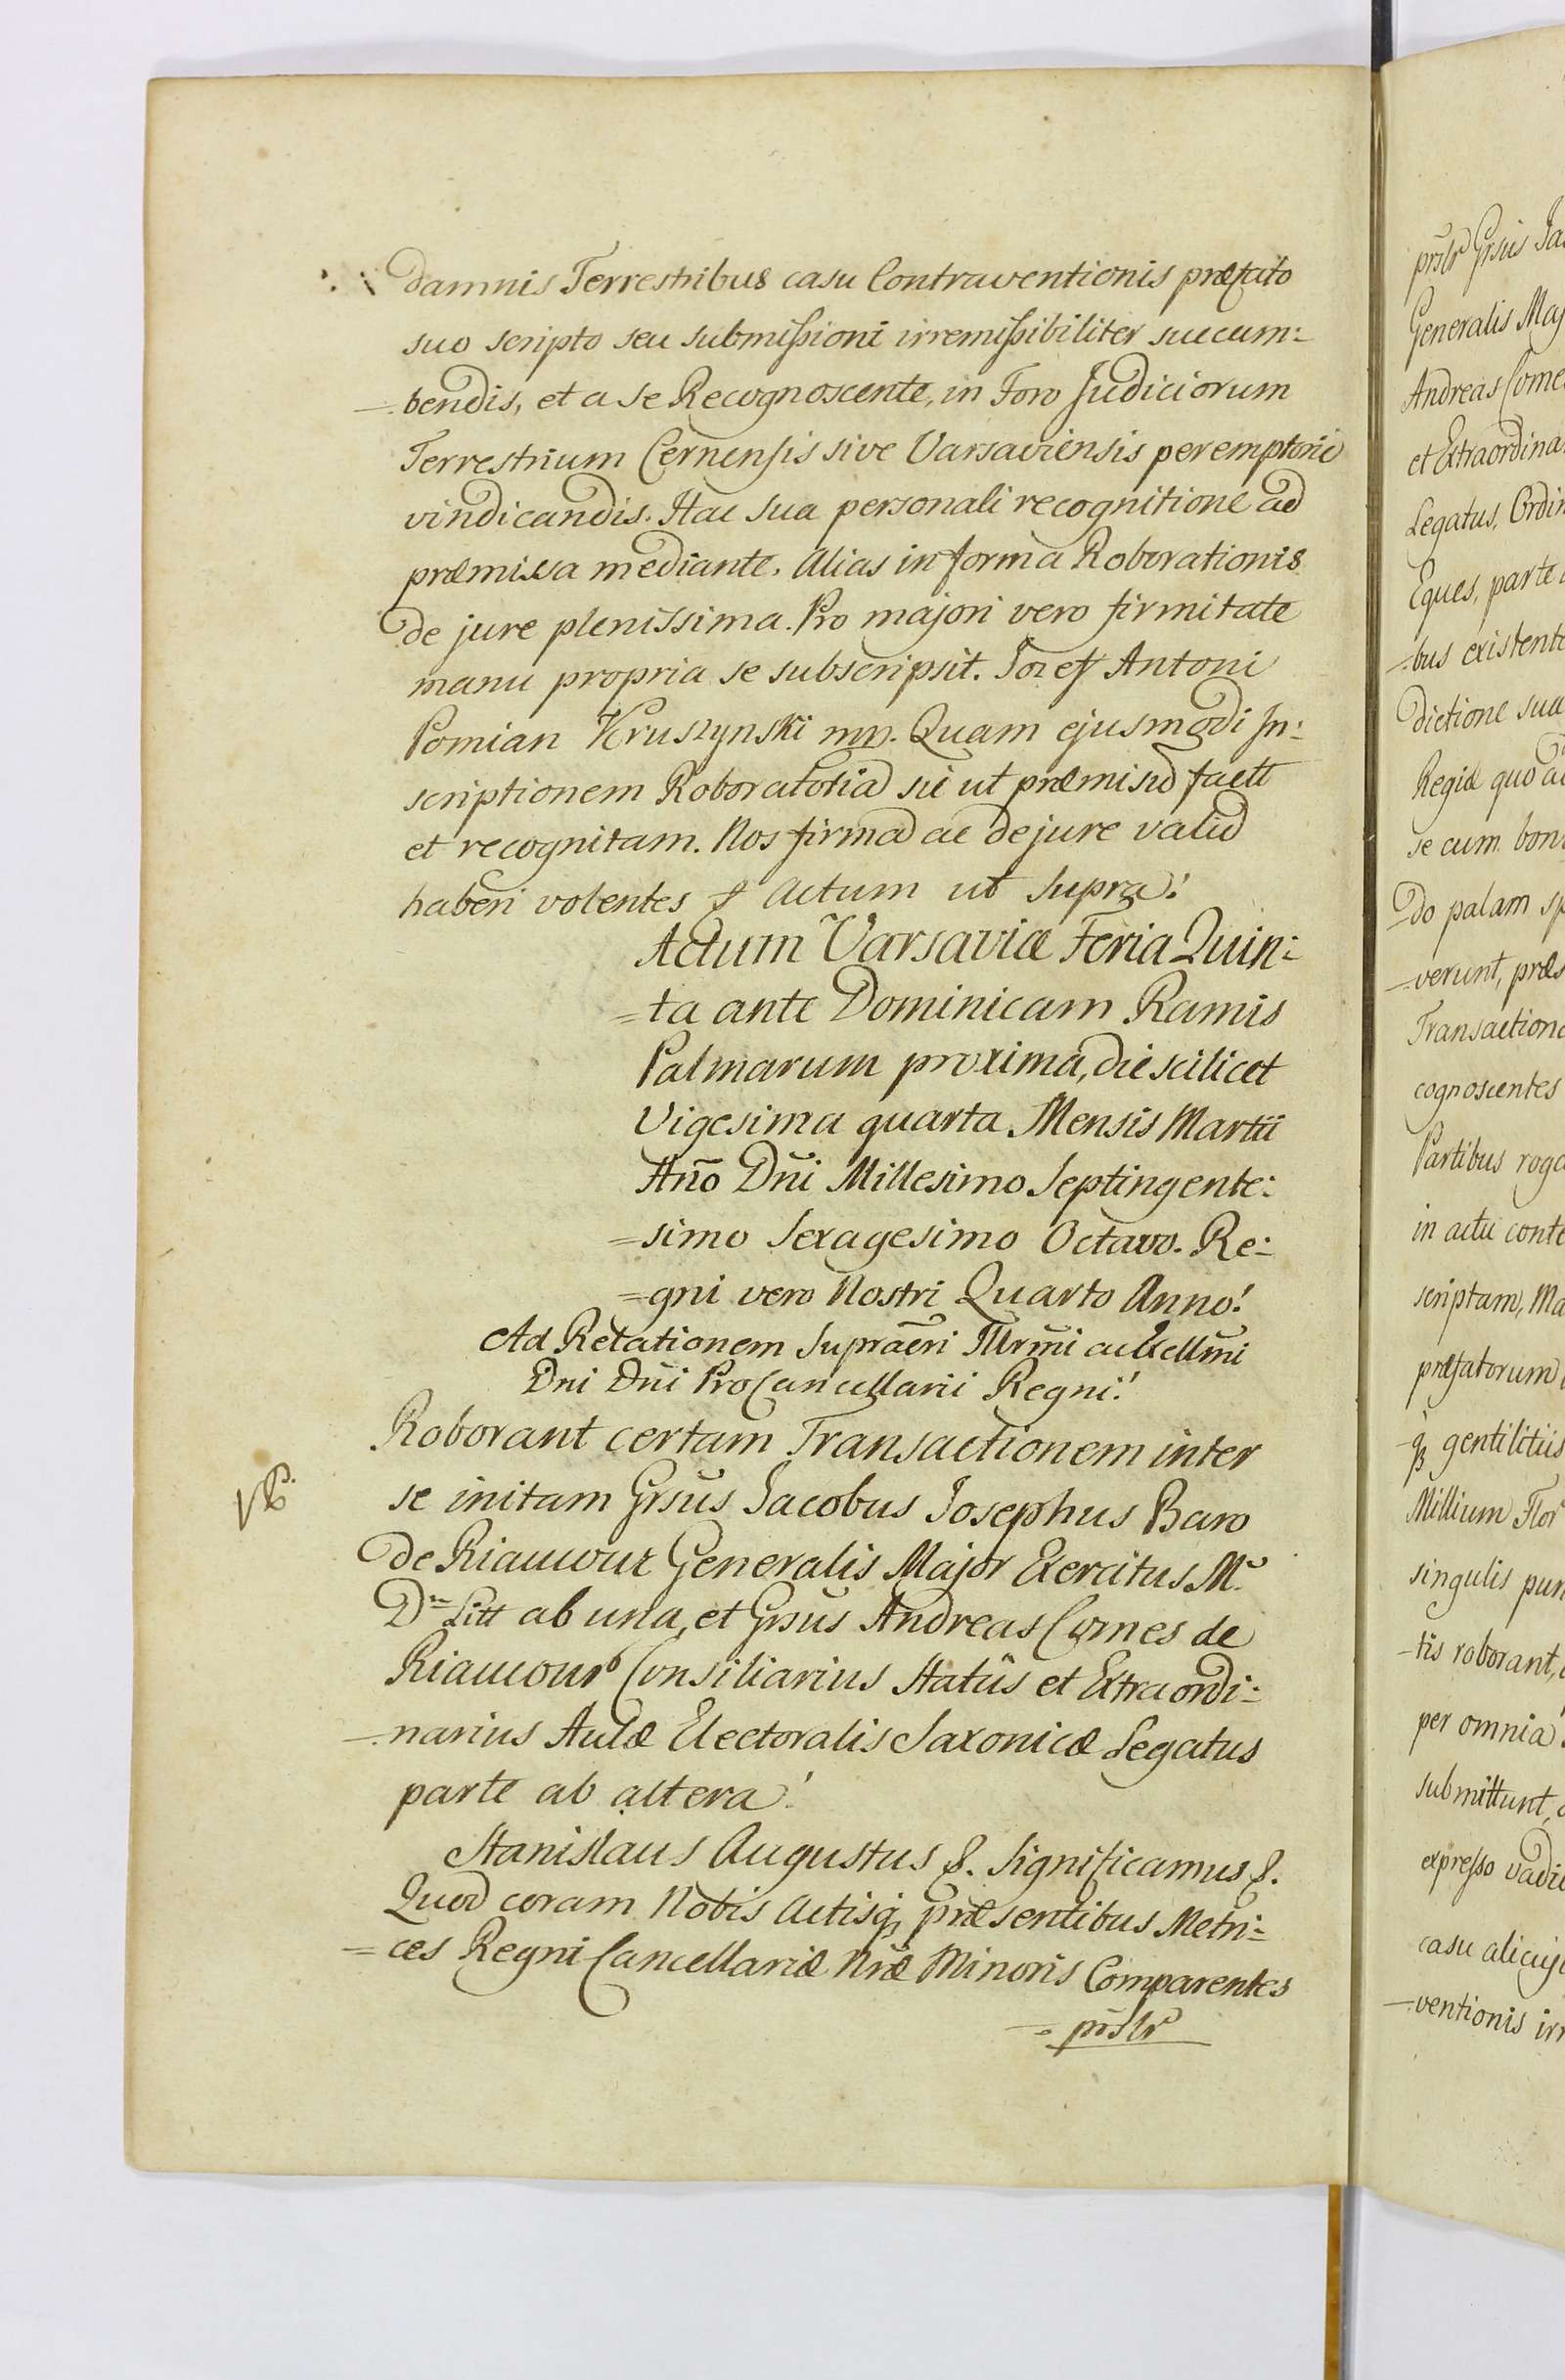 damnis Terrestribus casu Contraventionis præfato
suo scripto seu submissioni irremissibiliter succum:
bendis, et a se Recognoscente, in Foro Judiciorum
Terrestrium Cernensis sive Varsaviensis peremptorie
vindicandis. Hac sua personali recognitione ad
præmissa mediante. Alias in forma Roborationis
de jure plenissima. Pro majori vero firmitate
manu propria se subscripsit. Jozef Antoni
Pomian Kruszynski mp. Quam ejusmodi In:
scriptionem Roboratoria sic ut præmis fact
et recognitam. Nos firma ac de jure valid
haberi volentes & Actum ut supra.
Actum Varsaviæ Feria Quin:
=ta ante Dominicam Ramis
Palmarum proxima, die scilicet
Vigesima quarta Mensis Martii
Año Dñi Millesimo Septingente:
=simo Sexagesimo Octavo. Re:
=gni vero Nostri Quarto Anno!
Ad Relationem Supraēri Illrmi ac Excellmi
Dni Dñi ProCancellarii Regni!
Roborant certam Transactionem inter
se initam Grsus Jacobus Josephus Baro
de Riaucour Generalis Major Exercitus M.
D. Litt ab una, et Grsus Andreas Comes de
Riaucour Consiliarius Statûs et Extraordi:
narius Aulæ Electoralis Saxonicæ Legatus
parte ab altera!
Stanislaus Augustus &. Significamus &.
Quod coram Nobis Actisq, præsentibus Metri:
=ces Regni Cancellariæ Nræ Minoris Comparentes
prslr
prslr Grsus Ja
Generalis Maj
Andreas Come
et Extraordina
Legatus, Ordin
Eques, parte
bus existente
dictione sua
Regiæ quo a
se cum bon
do palam sp
verunt, præs
Transactione
cognoscentes
Partibus roga
in actu conte
scriptam, Ma
præfatorum
q, gentilitiis
Millium Flor
singulis pun
tis roborant,
per omnia
submittunt,
expresso vadi
casu alicuj
ventionis irr